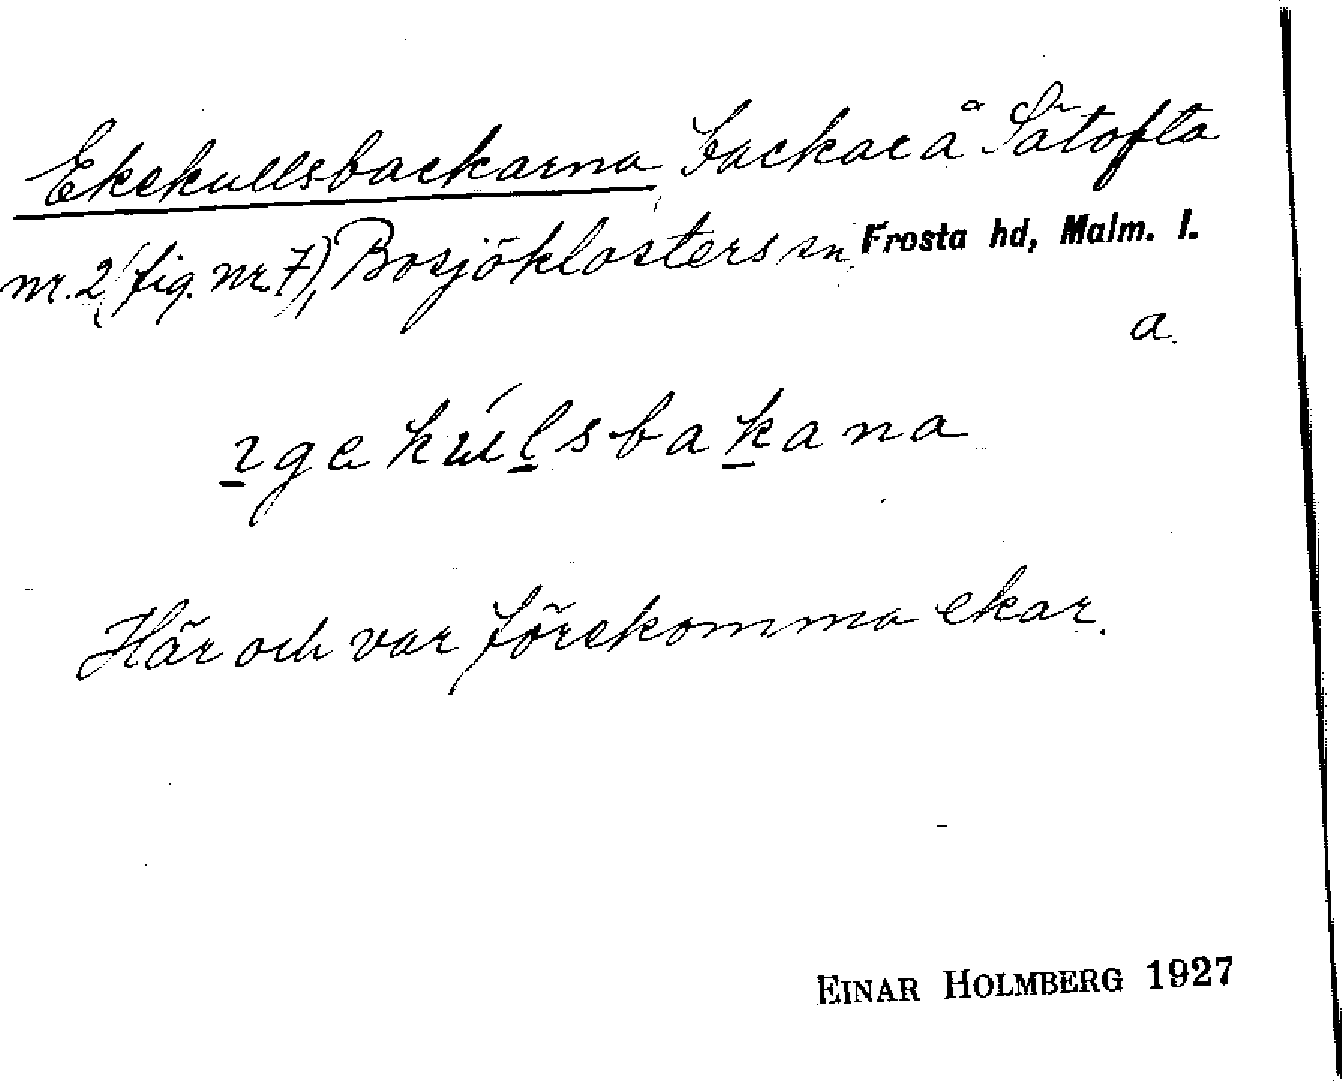 Ekekullsbackarna, backar å Sätofta
nr. 2 (fig. nr 7), Bosjöklosters sn, Frosta hd, Malm. l.
a.
ɿgekúlsbakana
Här och var förekomma ekar.
EINAR HOLMBERG 1927